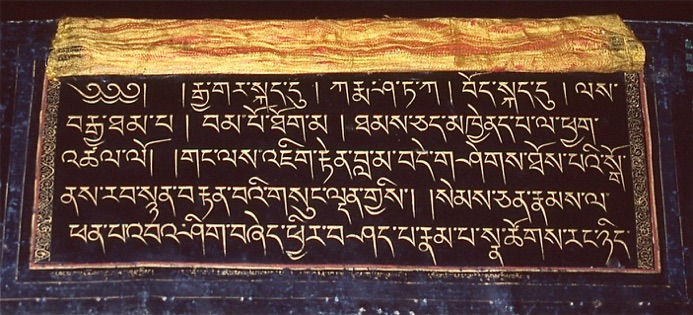 ༄༅༅། །རྒྱ་གར་སྐད་དུ། ཀརྨ་ཤ་ཏ་ཀ། བོད་སྐད་དུ། ལས་
བརྒྱ་ཐམ་པ། བམ་པོ་ཐོག་མ། ཐམས་ཅད་མཁྱེནད་པ་ལ་ཕྱག་
འཚལ་ལོ། །གང་ལས་འཇིག་རྟེན་བླམ་བདེ་གཤེགས་ཐོས་པའི་སྒོ་
ནས་རབ་སྙན་བརྟན་བའི་གསུང་ལྡན་གྱིས། །སེམས་ཅན་རྣམས་ལ་
ཕན་པའབའ་ཤིག་བཞེད་ཕྱིར་བཤད་པ་རྣམ་པ་སྣ་ཚོགས་རང་ཉིད་